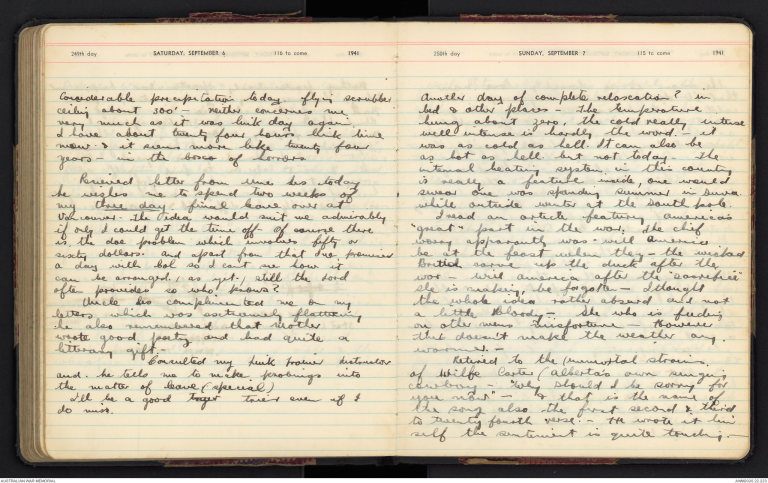 249th day SATURDAY, SEPTEMBER 6 116 to come 1941
Considerable precipitation today flying scrubbed
ceiling about 300' - neither concerns me
very much as it was link day again
I have about twenty four hours link time
now & it seems more like twenty four
years - in the boxo of horrors
Received letter from Unc Les today
he wishes me to spend two weeks of
my three day final leave over at
Vancouver. The idea would suit me admirably
if only I could get the time off. Of course there
is the doe problem which involves fifty or
sixty dollars. and apart from that I've promised
a day with bob so I cant see how it
can be arranged as yet, still the Lord
often provides so who knows?
Uncle Les complimented me on my
letters which was extremely flattering
he also remembered that Mother
wrote good poetry and had quite a
litterary gift.
Consulted my link instructor
and he tells me to make probings into
the matter of leave (special)
I'll be a good trier even if I
do miss.
250th day SUNDAY, SEPTEMBER 7 115 to come 1941
Another day of complete relaxation? in
bed & other places - The temperature
hung about zero, the cold really intense
well intense is hardly the word - it
was as cold as hell. It can also be
as hot as hell but not today. The
internal heating system in this country
is really a feature inside, one would
swear one was spending summer in
while outside winter at the South pole.
I read an article featuring america's
"great" part in the war; the chief
worry apparently was - will America
be at the feast when they - the wicked
British carve up the duck after the
war - will america after the "sacrifice"
she is making be forgotten - I thought
the whole idea rather absurd and not
a little bloody - She who is feeding
on other mens misfortune - However
this doesn't make the weather any
warmer. -
Retired to the immortal strains
of Wilfe Carter (Alberta's own singing
cowboy - "Why should I be sorry for
you now" - & that is the name of
the song also the first second & third
to twenty fourth verse. - He wrote it him
self the sentiment is quite touching. -
AUSTRALIAN WAR MEMORIAL